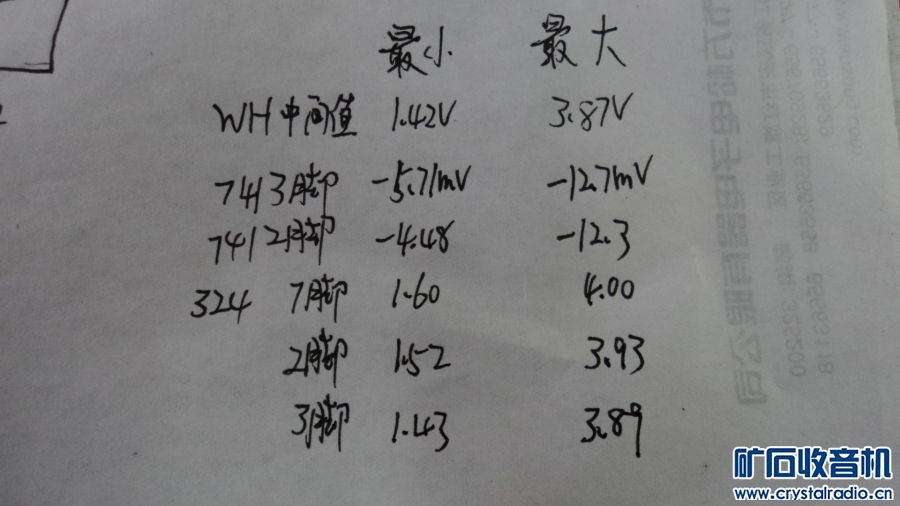 最小 最大
WH中间值 1.42V 3.87V
741 3脚 -5.71mV -12.7mV
741 2脚 -4.48 -12.3
324 7脚 1.60 4.00
2脚 1.52 3.93
3脚 1.43 3.89
电子电器有限公司
325200
矿石收音机
www.crystalradio.cn